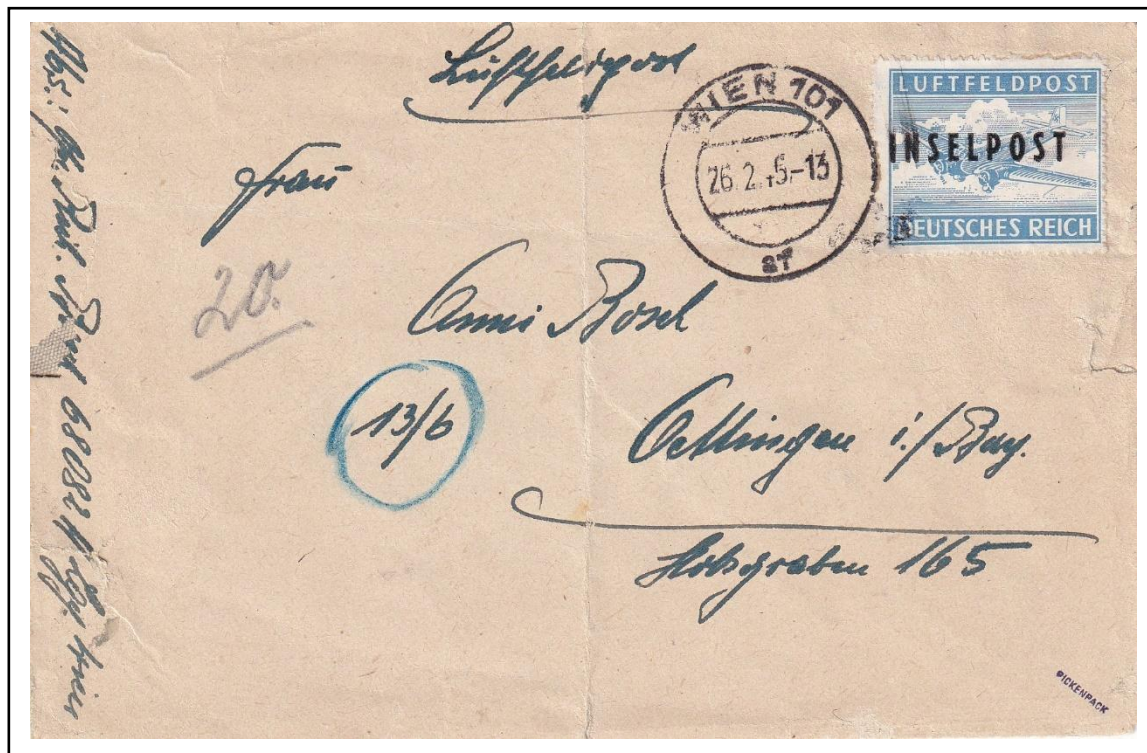 Luftfeldpost
WIEN 101
26.2.45.-13
aT
LUFTFELDPOST
INSELPOST
DEUTSCHES REICH
Frau
20.
Anni Bosel
13/b
Oettingen i./Bay.
165
Abs.: 68082
PICKENPACK